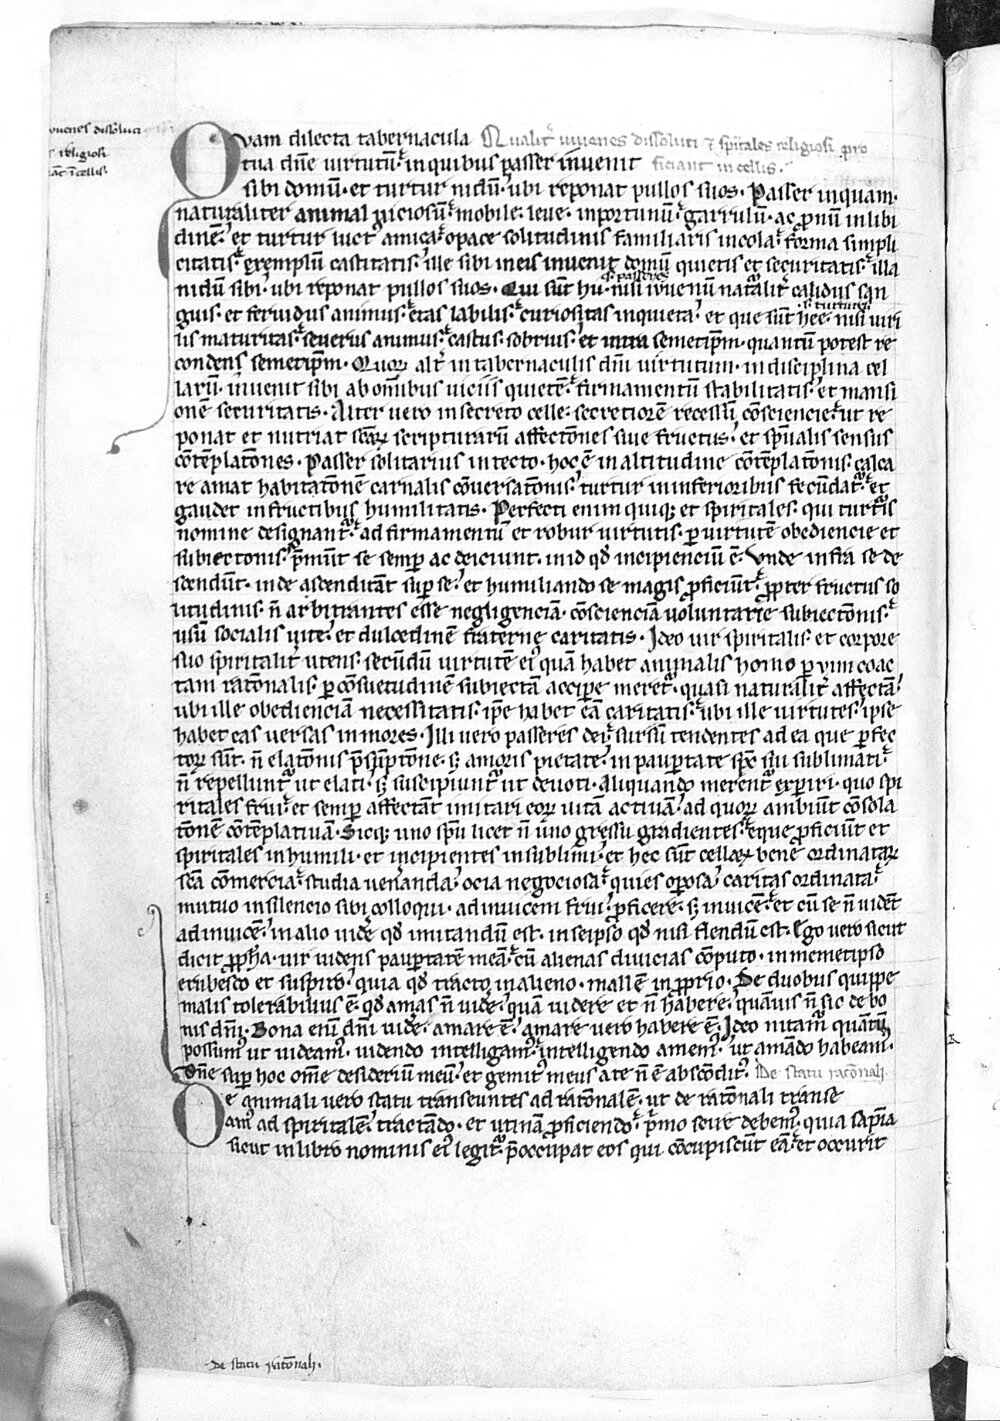 iuuenes dissoluti
& religiosi
ciant ī cellis.
Quam dilecta tabernacula Qualiť iuuenes dissoluti ⁊ spītales religiosi pro
tua dn̄e uirtutū. in quibus passer inuenit ficiant in cellis.
sibi domū. et turtur nidū. ubi reponat pullos suos. Passer inquam.
naturaliter animal uiciosū. mobile. leue. inportunū. garrulū. ac ꝓnū in libi
dinē. et turtur luct᷒ amica. opace solitudinis familiaris incola. forma simpli
citatis. exemplū castitatis. ille sibi in eis inuenit domū quietis et securitatis. illa
nidū sibi. ubi reponat pullos suos. Qui sūt hii. nisi iuuenū naťaliť calidus san
.s. passeres
guis. et feruidus animus. etas labilis. curiositas inquieta. et que sūt hee. nisi uiri
.s. turtures
lis maturitas. seuerius animus. castus. sobrius. et intra semetip̄m. quantū potest re
condens semetip̄m. Quoꝝ alť in tabernaculis dn̄i uirtutum. in disciplina cel
larū. inuenit sibi ab om̄ibus uiciis quietē. firmamentū stabilitatis. et mansi
onē securitatis. Alter uero in secreto celle. secretiorē recessū cōsciencie. ut re
ponat et nutriat scāꝝ scripturarū affectōnes siue fructus. et spūalis sensus
cōtēplatōnes. Passer solitarius in tecto. hoc ē in altitudine cōtēplatōnis. calca
re amat habitatōnē carnalis cōuersatōnis. turtur in inferioribus fecūdat᷑. et
gaudet in fructibus humilitatis. Perfecti enim quiqꝫ et spiritales. qui turťis
nomine designant᷑. ad firmamentū et robur uirtutis. ꝑ uirtutē obediencie et
subiectonis. p̄mūt se semꝑ ac deiciunt. in id qd̄ incipienciū ē. Vnde infra se de
scendūt. inde ascendūt suꝑ se. et humiliando se magis ꝓficiūt. ꝓpter fructus so
litudinis. n̄ arbitrantes esse negligenciā. cōsciencia uoluntarie subiectōnis.
usū socialis uite. et dulcedinē fraterne caritatis. Ideo uir spiritalis et corpore
suo spiritaliť utens. secūdū uirtutē ei᷒ quā habet animalis homo ꝑ uim coac
tam ratōnalis. ꝑ cōsuetudinē subiectā accipe meret᷑. quasi naturaliť affectā.
ubi ille obedienciā necessitatis. ip̄e habet eā caritatis. ubi ille uirtutes. ipse
habet eas uersas in mores. Illi uero passeres dei. sursū tendentes ad ea que ꝑfec
toꝝ sūt. n̄ elatōnis p̄sūptōne. sꝫ amoris pietate. in paupertate spē siu sublimati.
n̄ repellunt᷑ ut elati. sꝫ suscipiunt᷑ ut deuoti. Aliquando merent᷑ exꝑiri. quo spi
ritales frui. et semꝑ affectāt imitari eoꝝ uitā actiuā. ad quoꝝ ambiūt cōsola
tōnē cōtēplatiuā. Sicqꝫ uno spū licet n̄ uno gressu gradientes. eque ꝓficiūt et
spiritales in humili. et incipientes in sublimi. et hec sūt cellaꝝ bene ordinataꝝ
scā cōmercia. studia uenanda. ocia negociosa. quies oꝑosa. caritas ordinata.
mutuo in silencio sibi colloqui. ad inuicem frui. ꝓficere. sꝫ inuicē. et cū se n̄ uidēt
ad inuicē. in alio uidē qd̄ imitandū est. in seipso qd̄ nisi flendū est. Ego uero sicut
dicit ꝓpha. uir uidens paupertatē meā. cū alienas diuicias cōputo. in memetipso
erubesco et suspiro. quia qd̄ tracto in alieno. mallē in ꝓprio. De duobus quippe
malis tolerabilius ē. qd̄ amas n̄ uide. quā uidere et n̄ habere. quāuis n̄ sic de bo
nis dn̄i. Bona enī dn̄i uide. amare ē. amare uero habere ē. Ideo nitam᷑ quātū
possum᷒ ut uideam᷒. uidendo intelligam᷒. intelligendo amem᷒. ut amādo habeam᷒.
Dn̄e suꝑ hoc om̄e desideriū meū. et gemit᷒ meus a te n̄ ē abscōdit᷒. De statu ratōnali
De animali uero statu transeuntes ad ratōnalē. ut de ratōnali transe
am᷒ ad spiritalē. tractādo. et utinā ꝓficiendo. p̄mo scire debem᷒. quia sap̄ia
sicut in libro nominis ei᷒ legit᷑. p̄occupat eos qui cōcupiscūt eā. et occurit
De statu ratōnali.